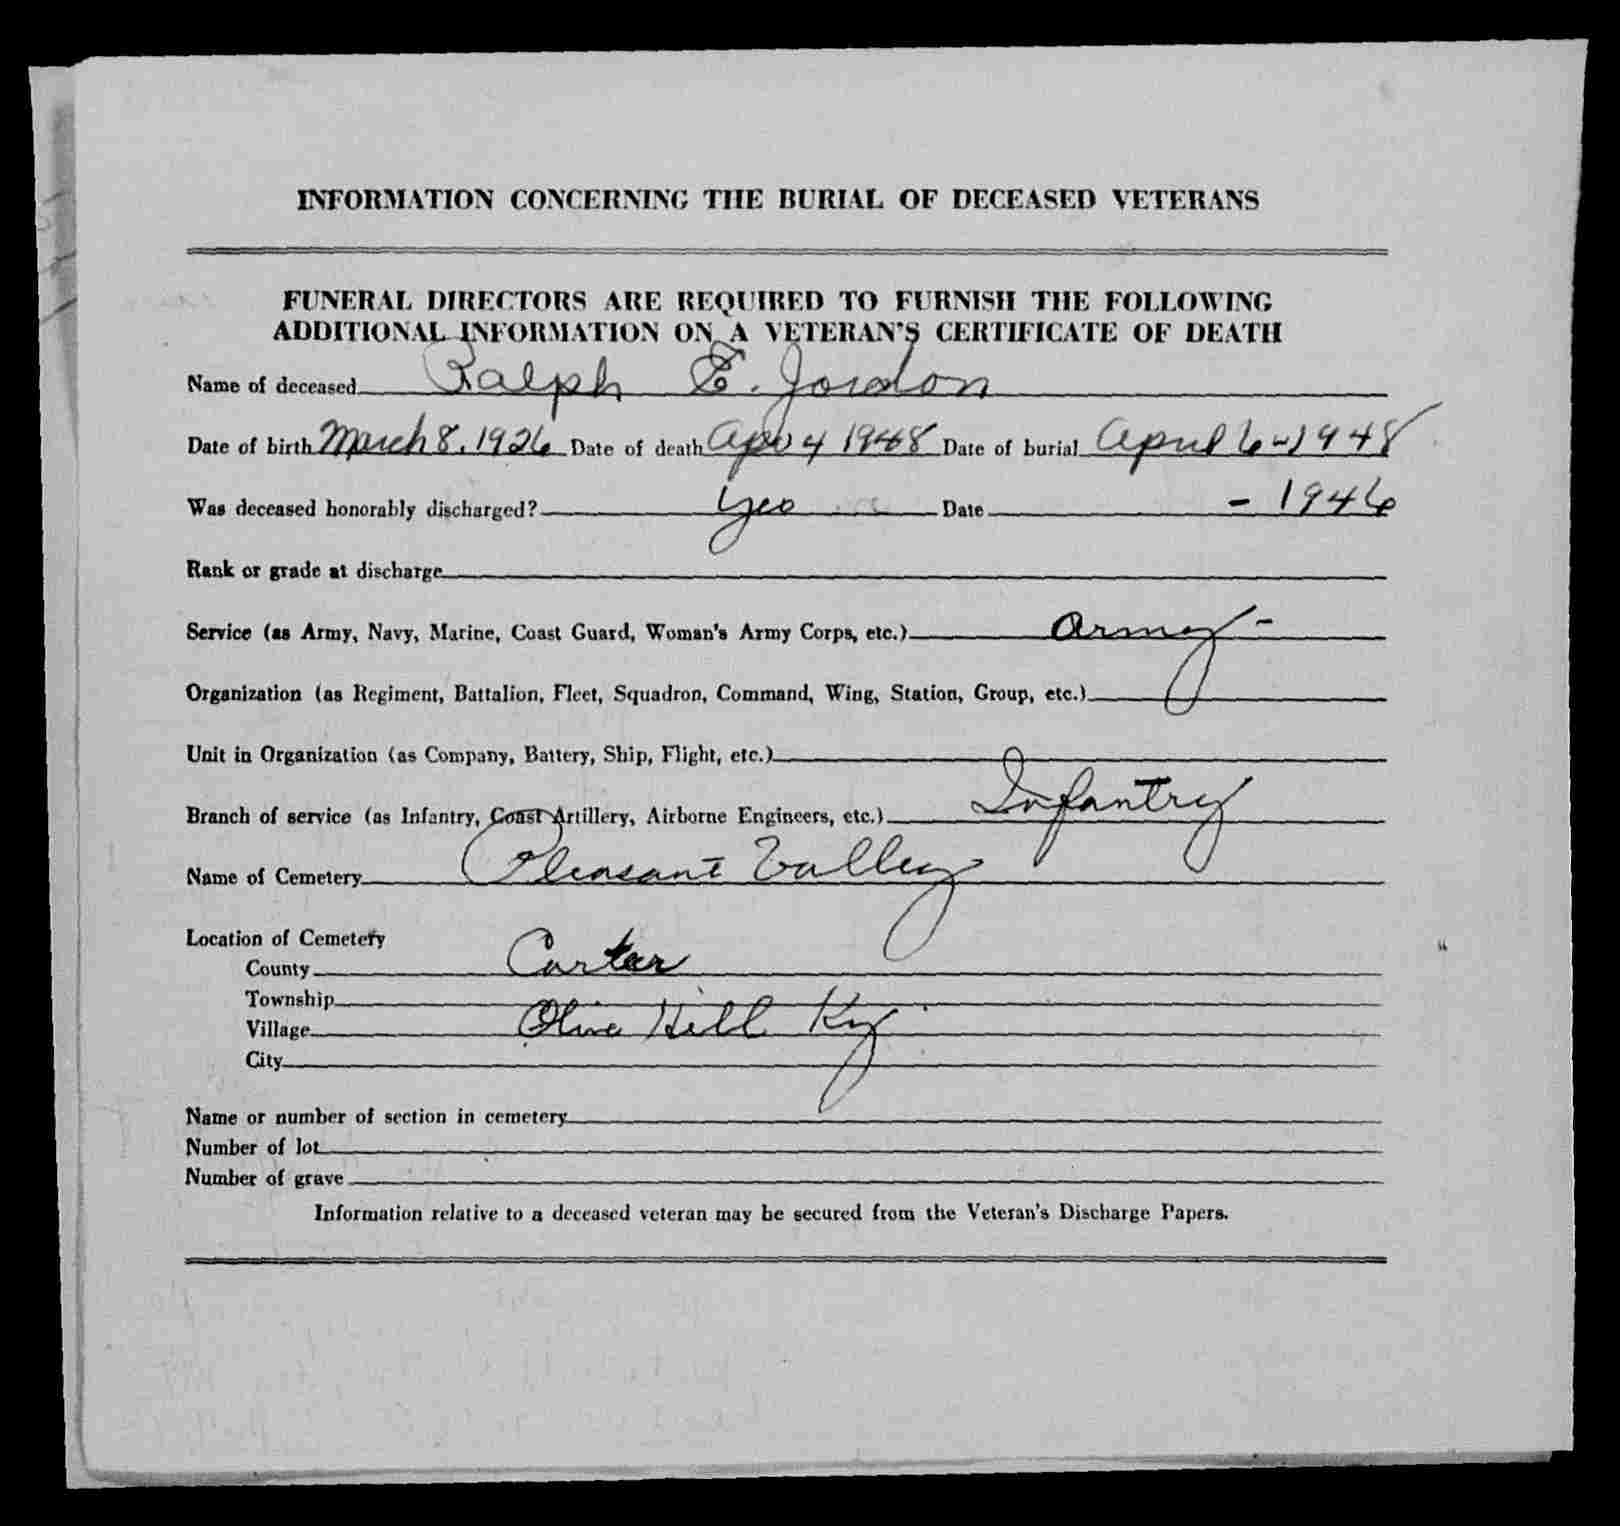 INFORMATION CONCERNING THE BURIAL OF DECEASED VETERANS
FUNERAL DIRECTORS ARE REQUIRED TO FURNISH THE FOLLOWING
ADDITIONAL INFORMATION ON A VETERAN'S CERTIFICATE OF DEATH
Name of deceased Ralph E. Jordon
Date of birth March 8, 1926 Date of death Apr 4 1948 Date of burial April 6-1948
Was deceased honorably discharged? Yes Date - 1946
Rank or grade at discharge
Service (as Army, Navy, Marine, Coast Guard, Woman's Army Corps, etc.) Army -
Organization (as Regiment, Battalion, Fleet, Squadron, Command, Wing, Station, Group, etc.)
Unit in Organization (as Company, Battery, Ship, Flight, etc.)
Branch of service (as Infantry, Coast Artillery, Airborne Engineers, etc.) Infantry
Name of Cemetery Pleasant Valley
Location of Cemetery
County Carter
Township
Village Olive Hill Ky
City
Name or number of section in cemetery
Number of lot
Number of grave
Information relative to a deceased veteran may be secured from the Veteran's Discharge Papers.